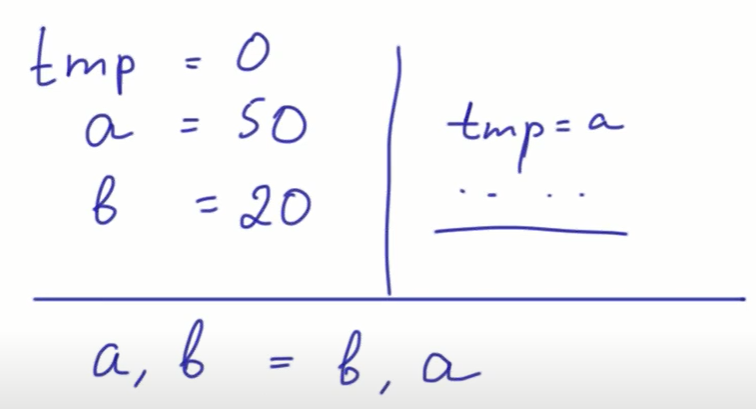 tmp = 0
a = 50
b = 20
tmp = a
.. ..
a, b = b, a